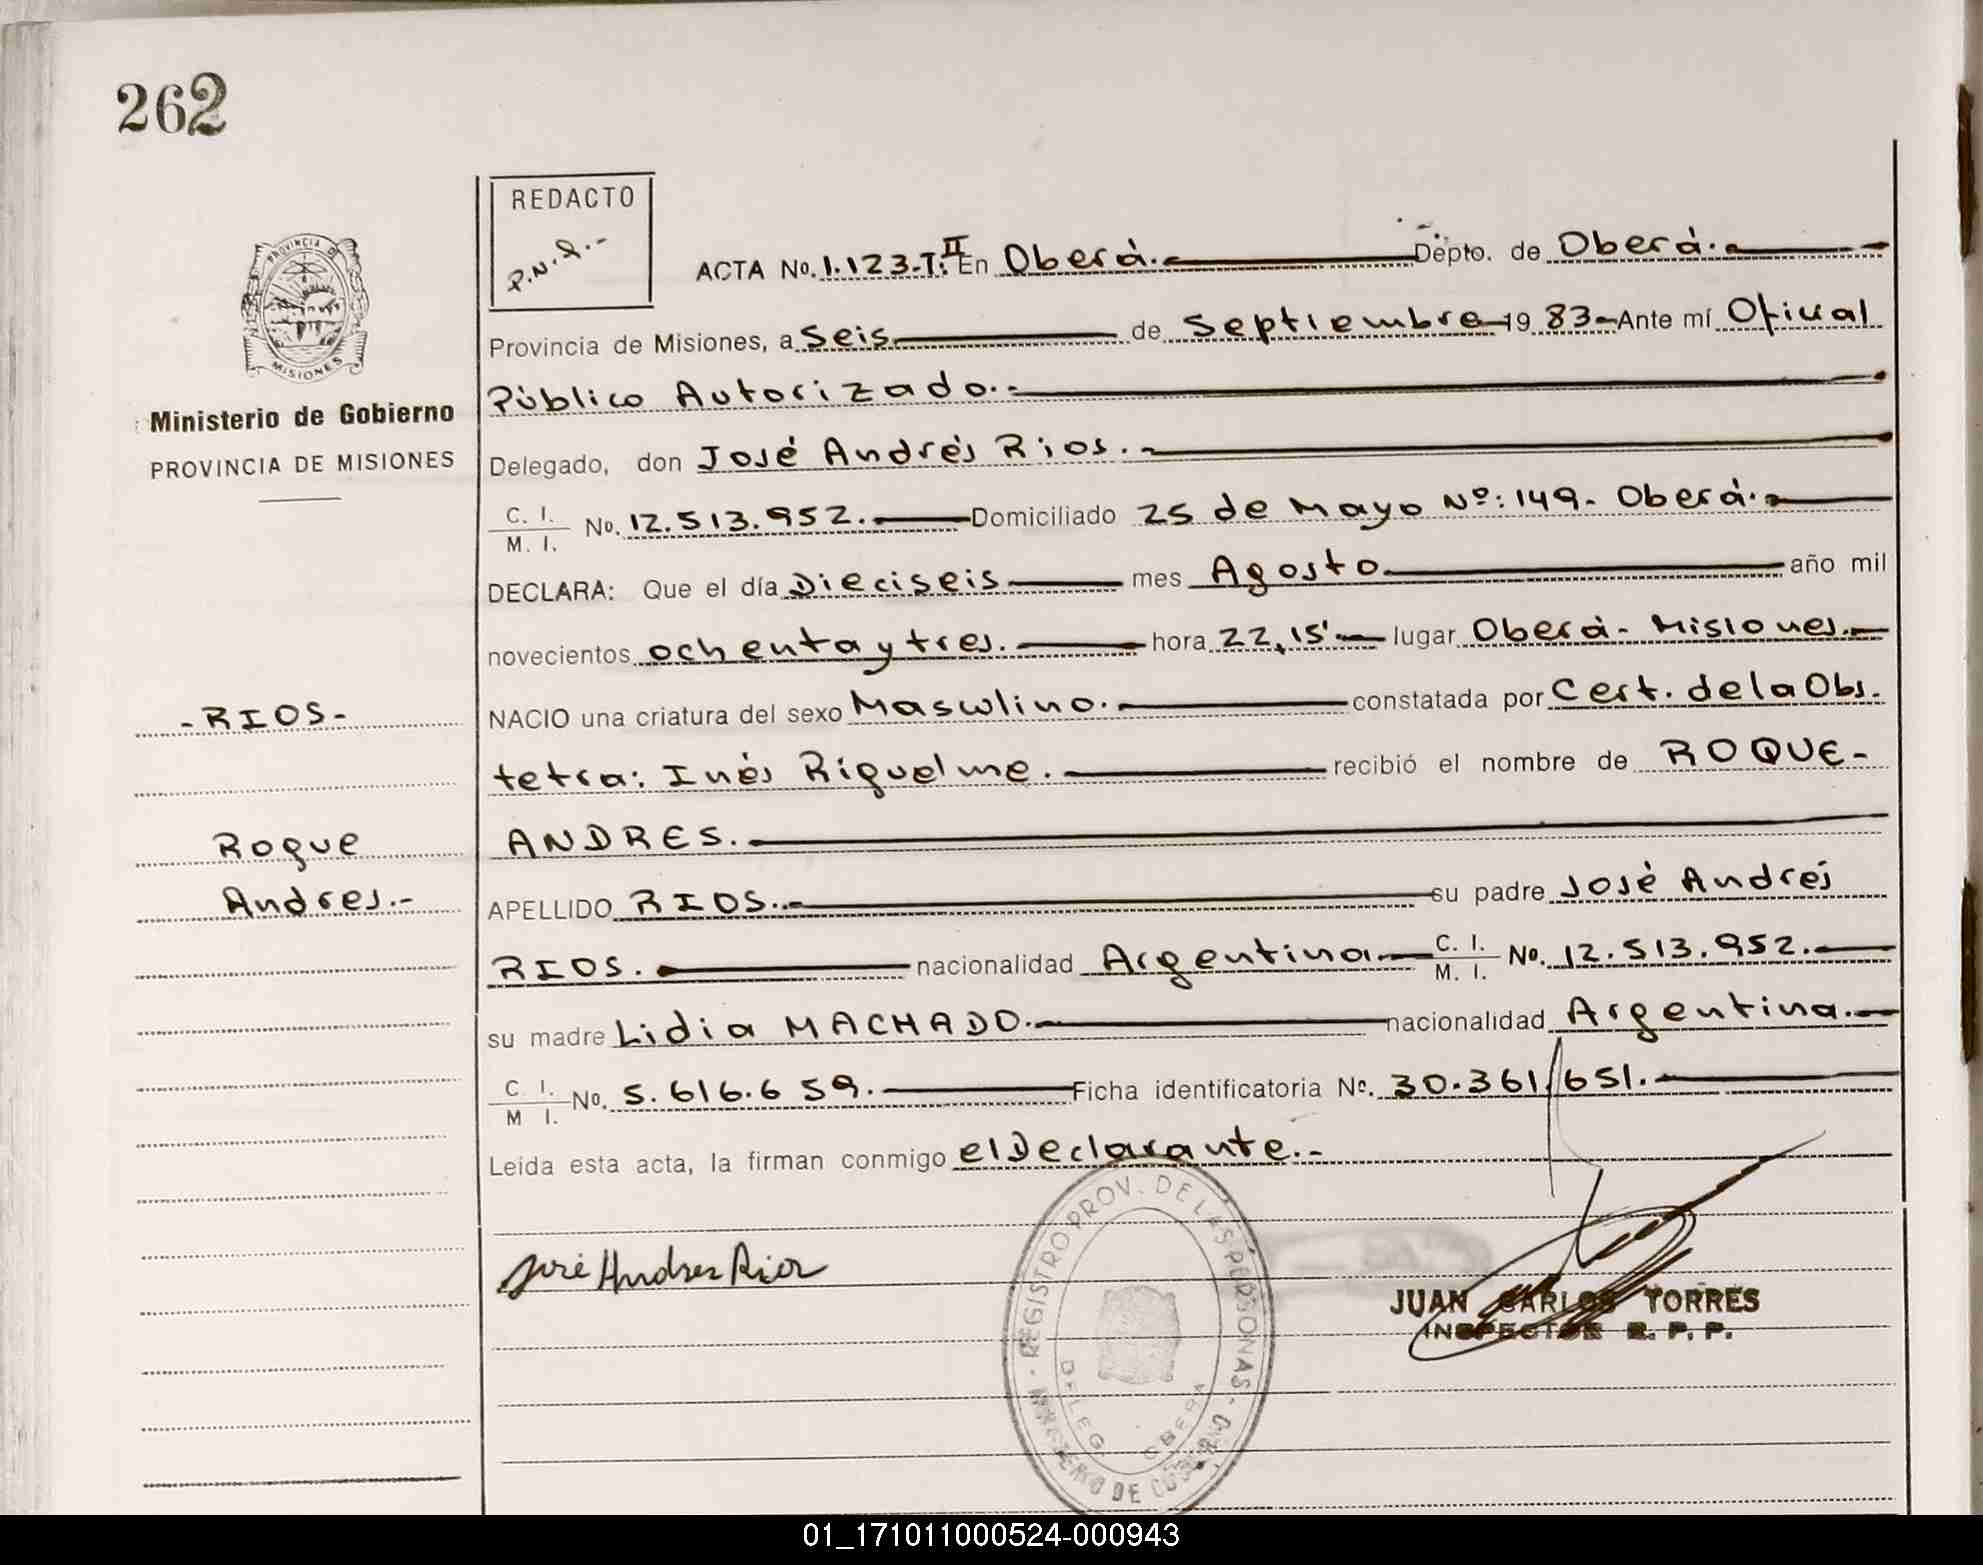 262
REDACTO
P.N.R.-
PROVINCIA DE
MISIONES
Ministerio de Gobierno
PROVINCIA DE MISIONES
ACTA No. 1.123-T:II En Oberá.- Depto. de Oberá.-
Provincia de Misiones, a Seis de Septiembre 19 83- Ante mí Oficial
Público Autorizado.-
Delegado, don José Andrés Rios.-
C. I. / M. I. No. 12.513.952.- Domiciliado 25 de Mayo Nº: 149- Oberá.-
DECLARA: Que el día Dieciseis mes Agosto año mil
novecientos ochenta y tres. hora 22,15' lugar Oberá- Misiones.-
NACIO una criatura del sexo Masculino. constatada por Cert. de la Obs.
tetra: Inés Riquelme. recibió el nombre de ROQUE-
ANDRES.
APELLIDO RIOS.- su padre José Andrés
RIOS. nacionalidad Argentina C. I. / M. I. No. 12.513.952.-
su madre Lidia MACHADO.- nacionalidad Argentina.-
C. I. / M. I. No. 5.616.659. Ficha identificatoria No. 30.361.651.-
Leída esta acta, la firman conmigo el Declarante.-
-RIOS-
Roque
Andres.-
José Andres Rios
REGISTRO PROV. DE LAS PERSONAS
MINISTERIO DE GOBIERNO
DELEG. OBERA
JUAN CARLOS TORRES
INSPECTOR R. P. P.
01_171011000524-000943